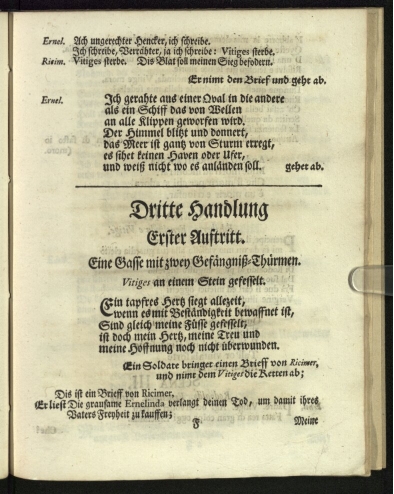 Ernel. Ach ungerechter Hencker, ich schreibe.
Ich schreibe, Verrähter, ja ich schreibe: Vitiges sterbe.
Ricim. Vitiges sterbe. Dis Blat soll meinen Sieg befodern.
Er nimt den Brief und geht ab.
Ernel. Ich gerahte aus einer Qval in die andere
als ein Schiff das von Wellen
an alle Klippen geworfen wird.
Der Himmel blitzt und donnert,
das Meer ist gantz von Sturm erregt,
es sihet keinen Haven oder Ufer,
und weiß nicht wo es anländen soll. gehet ab.
Dritte Handlung
Erster Auftritt.
Eine Gasse mit zwey Gefängniß-Thürmen.
Vitiges an einem Stein gefesselt.
Ein tapfres Hertz siegt allezeit,
wenn es mit Beständigkeit bewaffnet ist,
Sind gleich meine Füsse gefesselt;
ist doch mein Hertz, meine Treu und
meine Hoffnung noch nicht überwunden.
Ein Soldate bringet einen Brieff von Ricimer,
und nimt dem Vitiges die Ketten ab;
Dis ist ein Brieff von Ricimer,
Er liest Die grausame Ernelinda verlangt deinen Tod, um damit ihres
Vaters Freyheit zu kauffen;
F Meine